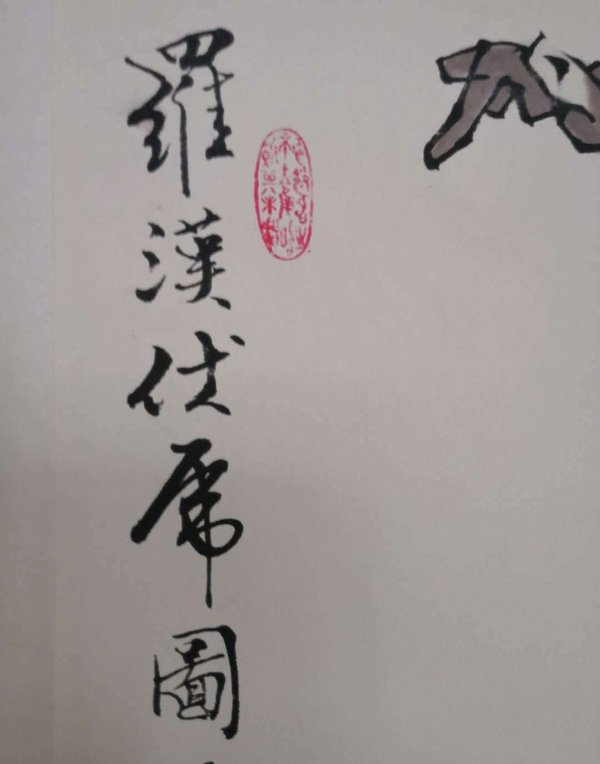 羅漢伏虎圖